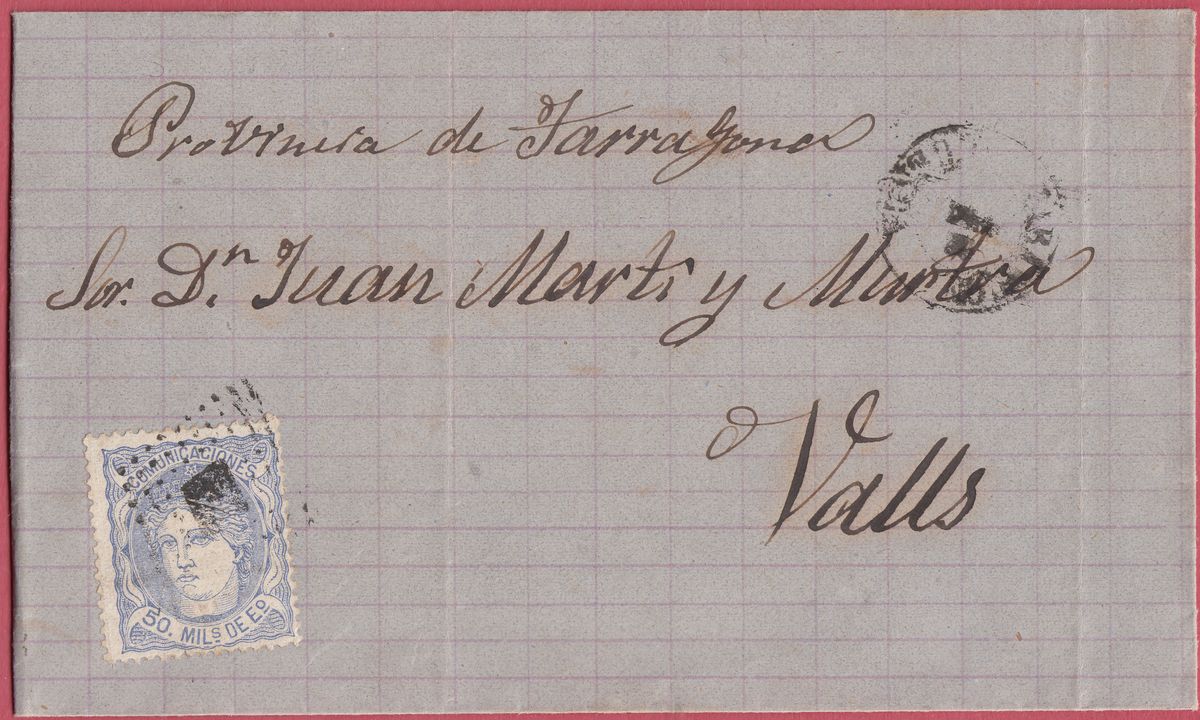 Provincia de Tarragona
Sor. Dn. Juan Marti y Murtra
Valls
COMUNICACIONES
50. MILS. DE Eo.